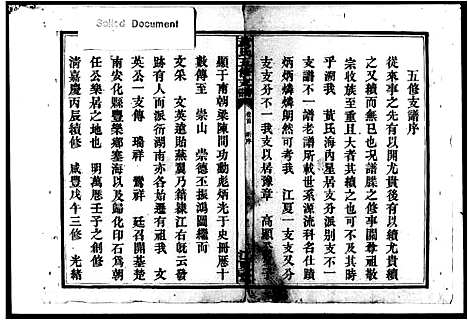 Soiled Document
五修支譜序
從來事之先有以開尤貴後有以續尤貴續
之又續而無已也况譜牒之修事關尊祖敬
宗收族至重且大者其續之也可不
乎溯我 黃氏海內星居支分派別支不一
支譜不一譜老譜所載世系源流科名仕蹟
炳炳燐燐朗然可考我 江夏一支支又分
支支分不一我支以居豫章 高顯
顯于南朝梁陳間功動彪炳光于史冊歷十
數傳至 崇山 崇德丕振鴻圖繼而
文采 文英遠貽燕翼乃籍隸江右旣云發
跡有人而派衍湖南亦各始遷有祖我 文
英公一支傳 瑞祥 鸞祥 廷召開基楚
南安化縣豐樂鄉寨海以及歸化印石爲朝
任公樂居之地也 明萬曆壬子之創修
清嘉慶丙辰續修 咸豐戊午三修 光緒